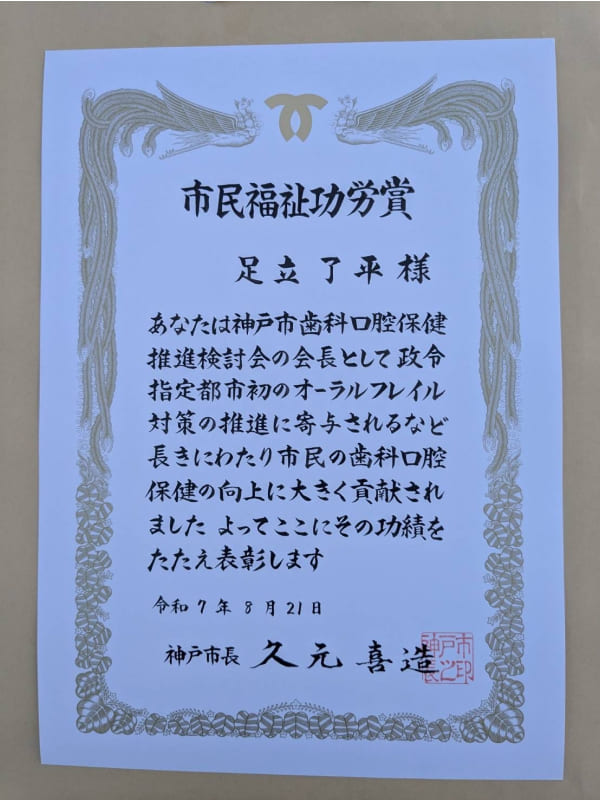 市民福祉功労賞
足立了平様
あなたは神戸市歯科口腔保健
推進検討会の会長として政令
指定都市初のオーラルフレイル
対策の推進に寄与されるなど
長きにわたり市民の歯科口腔
保健の向上に大きく貢献され
ました よってここにその功績を
たたえ表彰します
令和7年8月21日
神戸市長 久元喜造
神戸市長之印